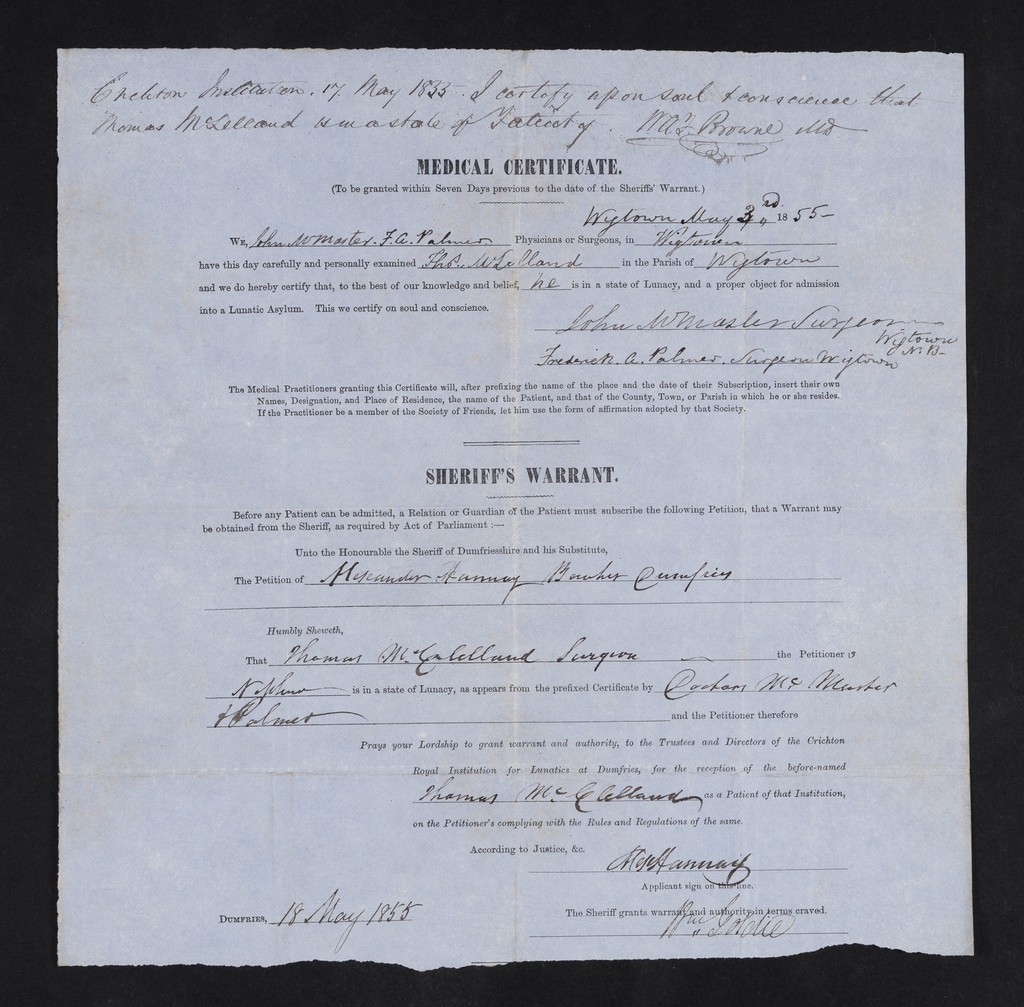 Crichton Institution. 17 May 1855. I certify upon soul & conscience that
Thomas McLelland is in a state of Fatuity. W A F Browne MD
MEDICAL CERTIFICATE.
(To be granted within Seven Days previous to the date of the Sheriffs' Warrant.)
Wigtown May 3rd 1855-
WE, John McMaster. F. A. Palmer Physicians or Surgeons, in Wigtown
have this day carefully and personally examined Thos. McLelland in the Parish of Wigtown
and we do hereby certify that, to the best of our knowledge and belief, he is in a state of Lunacy, and a proper object for admission
into a Lunatic Asylum. This we certify on soul and conscience.
John McMaster Surgeon
Wigtown
N.B-
Frederick. A. Palmer. Surgeon Wigtown
The Medical Practitioners granting this Certificate will, after prefixing the name of the place and the date of their Subscription, insert their own
Names, Designation, and Place of Residence, the name of the Patient, and that of the County, Town, or Parish in which he or she resides.
If the Practitioner be a member of the Society of Friends, let him use the form of affirmation adopted by that Society.
SHERIFF'S WARRANT.
Before any Patient can be admitted, a Relation or Guardian of the Patient must subscribe the following Petition, that a Warrant may
be obtained from the Sheriff, as required by Act of Parliament :—
Unto the Honourable the Sheriff of Dumfriesshire and his Substitute,
The Petition of Alexander Hannay Dumfries
Humbly Sheweth,
That Thomas McClelland Surgeon the Petitioner's
Nephew is in a state of Lunacy, as appears from the prefixed Certificate by Doctors McMaster
& Palmer and the Petitioner therefore
Prays your Lordship to grant warrant and authority, to the Trustees and Directors of the Crichton
Royal Institution for Lunatics at Dumfries, for the reception of the before-named
Thomas McClelland as a Patient of that Institution,
on the Petitioner's complying with the Rules and Regulations of the same.
According to Justice, &c.
Alexr Hannay
Applicant sign on this line.
DUMFRIES, 18 May 1855
The Sheriff grants warrant and authority in terms craved.
Wm Goldie